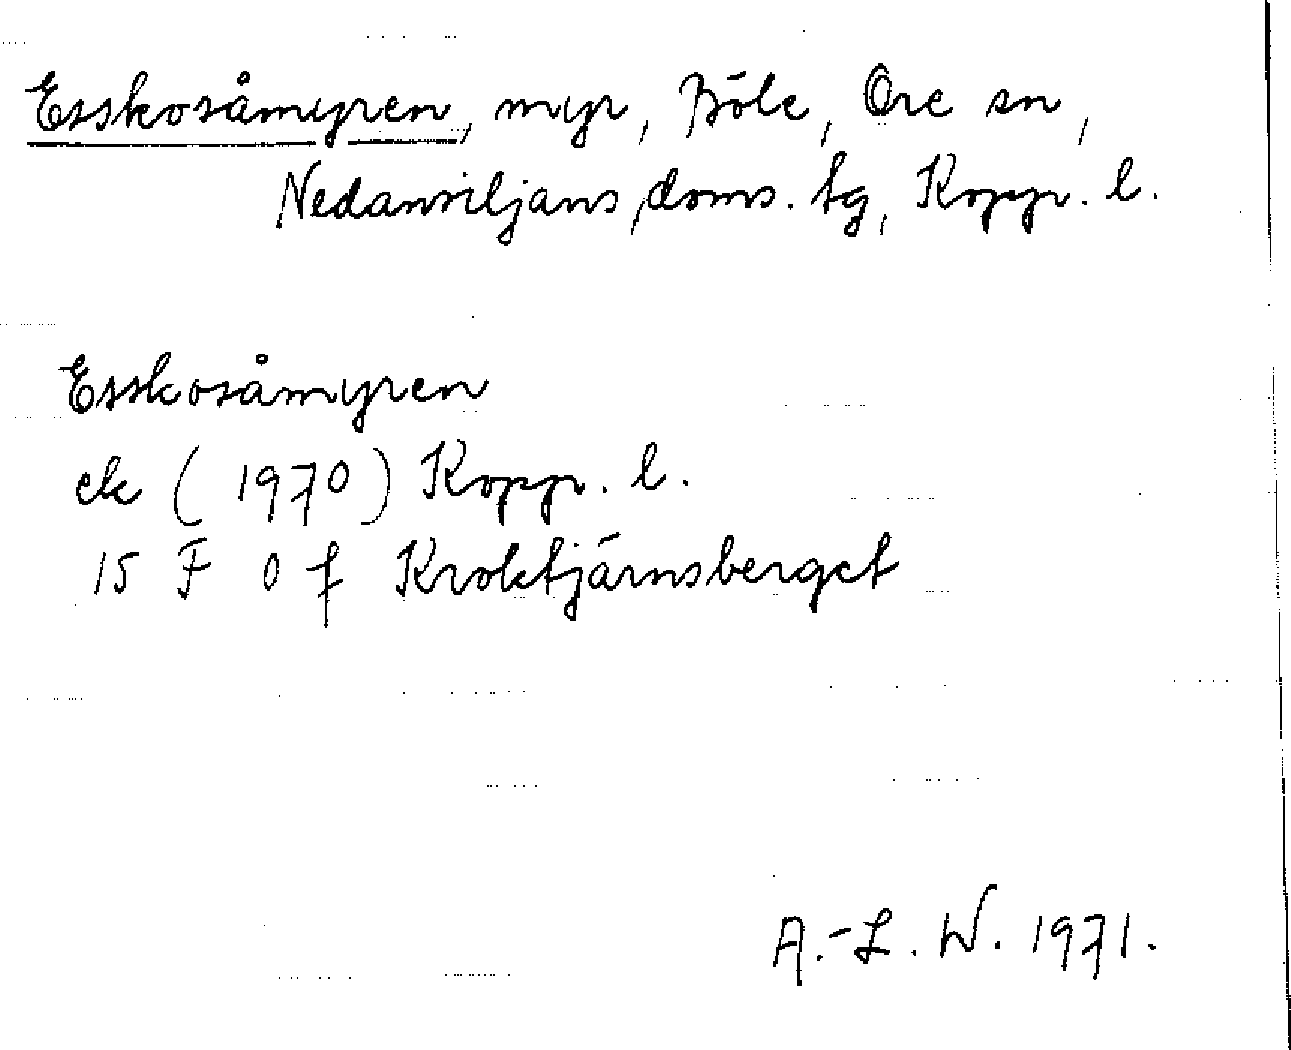 Esskosåmyren, myr, Böle, Ore sn,
Nedansiljans doms. tg, Kopp. l.
Esskosåmyren
ek (1970) Kopp. l.
15 F 0 f Kroktjärnsberget
A.-L. W. 1971.